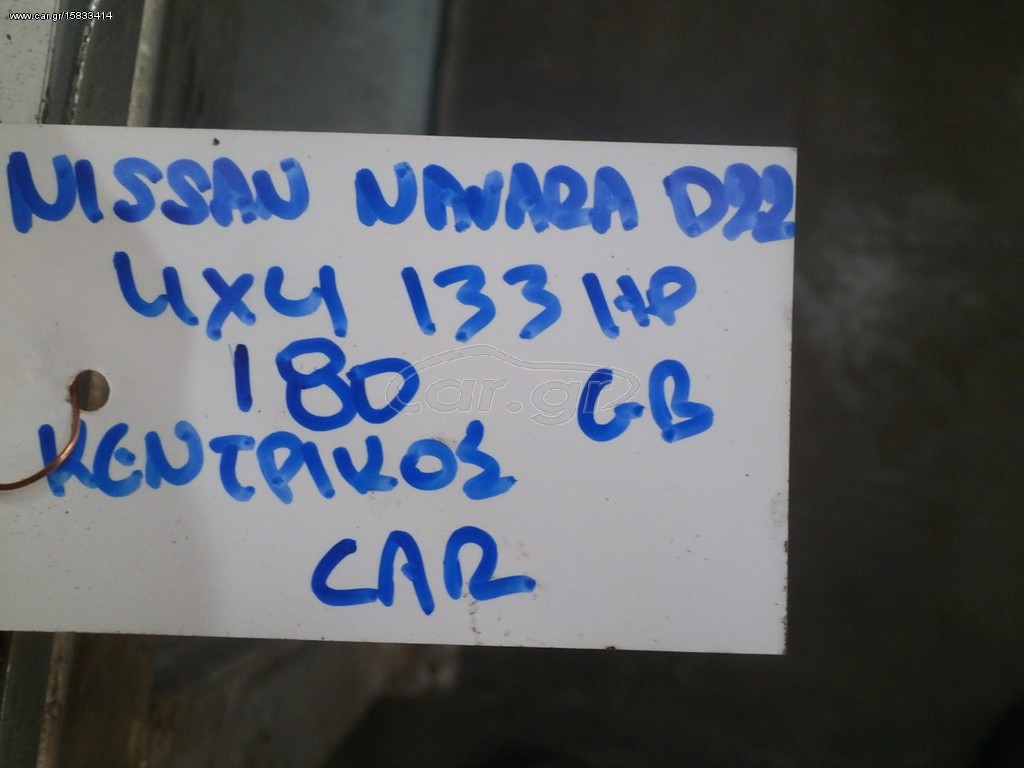 www.car.gr/15833414
NISSAN NAVARA D22
4X4 133 HP
180 GB
ΚΕΝΤΡΙΚΟΣ
CAR
car.gr